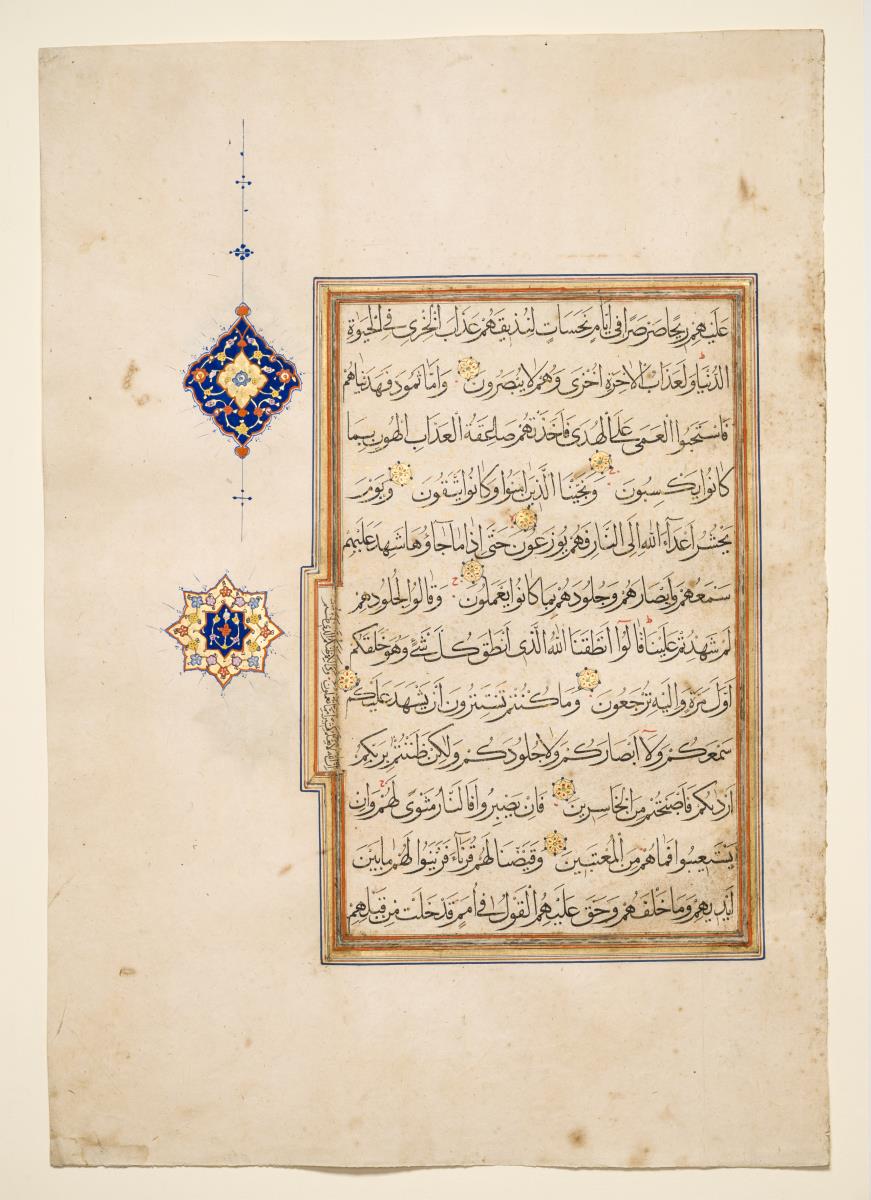 عَلَيْهِمْ رِيحًا صَرْصَرًا فِي أَيَّامٍ نَحِسَاتٍ لِنُذِيقَهُمْ عَذَابَ الْخِزْيِ فِي الْحَيٰوةِ
الدُّنْيَا وَلَعَذَابُ الْآخِرَةِ أَخْزَى وَهُمْ لَا يُنْصَرُونَ وَأَمَّا ثَمُودُ فَهَدَيْنَاهُمْ
فَاسْتَحَبُّوا الْعَمَى عَلَى الْهُدَى فَأَخَذَتْهُمْ صَاعِقَةُ الْعَذَابِ الْهُونِ بِمَا
كَانُوا يَكْسِبُونَ وَنَجَّيْنَا الَّذِينَ اٰمَنُوا وَكَانُوا يَتَّقُونَ وَيَوْمَ
يُحْشَرُ أَعْدَاءُ اللهِ إِلَى النَّارِ فَهُمْ يُوزَعُونَ حَتَّى إِذَا مَا جَاؤُوهَا شَهِدَ عَلَيْهِمْ
سَمْعُهُمْ وَأَبْصَارُهُمْ وَجُلُودُهُمْ بِمَا كَانُوا يَعْمَلُونَ وَقَالُوا لِجُلُودِهِمْ
لِمَ شَهِدْتُمْ عَلَيْنَا قَالُوا أَنْطَقَنَا اللهُ الَّذِي أَنْطَقَ كُلَّ شَيْءٍ وَهُوَ خَلَقَكُمْ
أَوَّلَ مَرَّةٍ وَإِلَيْهِ تُرْجَعُونَ وَمَا كُنْتُمْ تَسْتَتِرُونَ أَنْ يَشْهَدَ عَلَيْكُمْ
سَمْعُكُمْ وَلَا أَبْصَارُكُمْ وَلَا جُلُودُكُمْ وَلَكِنْ ظَنَنْتُمْ بِرَبِّكُمْ
أَرْدٰيكُمْ فَأَصْبَحْتُمْ مِنَ الْخَاسِرِينَ فَإِنْ يَصْبِرُوا فَالنَّارُ مَثْوًى لَهُمْ وَإِنْ
يَسْتَعْتِبُوا فَمَا هُمْ مِنَ الْمُعْتَبِينَ وَقَيَّضْنَا لَهُمْ قُرَنَاءَ فَزَيَّنُوا لَهُمْ مَا بَيْنَ
أَيْدِيهِمْ وَمَا خَلْفَهُمْ وَحَقَّ عَلَيْهِمُ الْقَوْلُ فِي أُمَمٍ قَدْ خَلَتْ مِنْ قَبْلِهِمْ